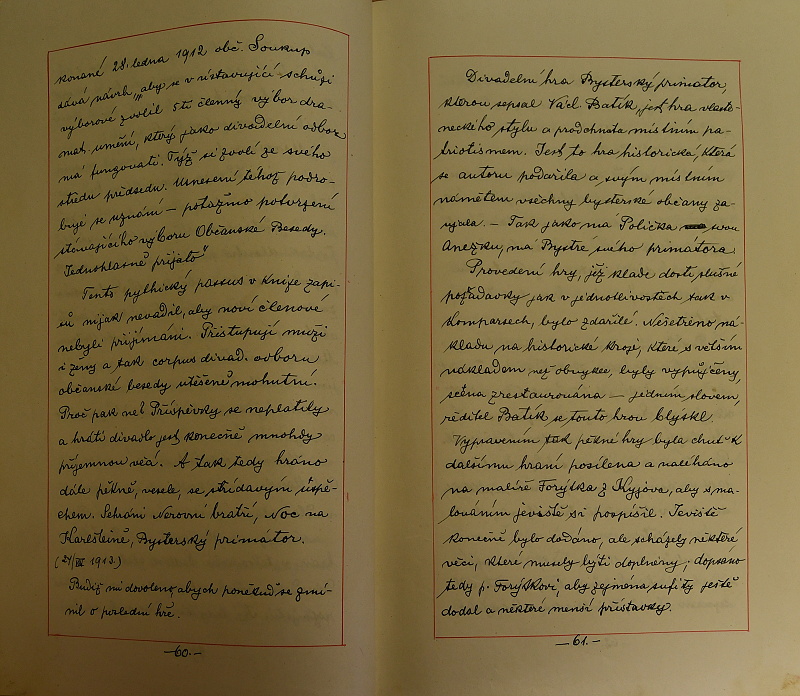 konané 28. ledna 1912 obč. Soukup
dává návrh „aby se v ustavující schůzi
výborové zvolil 5ti členný výbor dra-
mat. umění, který jako divadelní odbor
má fungovati. Týž si zvolí ze svého
středu předsedu. Usnesení téhož podro-
buje se uznání – potažmo potvrzení
stávajícího výboru Občanské Besedy.
Jednohlasně přijato"
Tento pythický passus v knize zápi-
sů nijak nevadil, aby noví členové
nebyli přijímáni. Přistupují muži
i ženy a tak corpus divad. odboru
občanské besedy utěšeně mohutní.
Proč pak ne? Příspěvky se neplatily
a hráti divadlo jest konečně mnohdy
příjemnou věcí. A tak tedy hráno
dále pěkně, vesele, se střídavým úspě-
chem. Sehráni Nerovní bratří, Noc na
Karlštejně, Bysterský primátor.
(24/III 1913.)
Budiž mi dovoleno, abych poněkud se zmí-
nil o poslední hře.
—60.—
Divadelní hra Bysterský primátor,
kterou sepsal Václ. Batík, jest hra vlaste-
neckého stylu a prodchnuta místním pa-
triotismem. Jest to hra historická, která
se autoru podařila a svým místním
námětem všechny bysterské občany za-
ujala. – Tak jako má Polička svou
Anežku, má Bystré svého primátora.
Provedení hry, jež klade dosti slušné
požadavky jak v jednotlivostech tak v
komparsech, bylo zdařilé. Nešetřeno ná-
kladu na historické kroje, které s větším
nákladem než obvykle, byly vypůjčeny,
scéna zrestaurována – jedním slovem,
ředitel Batík se touto hrou blýskl.
Vypravením tak pěkné hry byla chuť k
dalšímu hraní posílena a naléháno
na malíře Forýtka z Kyjova, aby s ma-
lováním jeviště si pospíšil. Jeviště
konečně bylo dodáno, ale scházely některé
věci, které musely býti doplněny; dopsáno
tedy p. Forýtkovi, aby zejména sufity ještě
dodal a některé menší přístavky.
—61.—